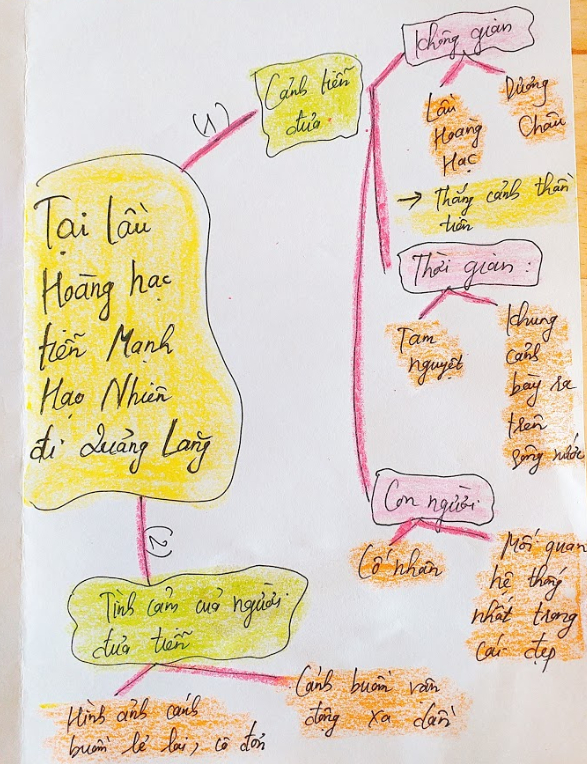 Tại lầu
Hoàng hạc
tiễn Mạnh
Hạo Nhiên
đi Quảng Lăng
(1)
Cảnh tiễn
đưa
Không gian
Lầu
Hoàng
Hạc
Dương
Châu
→ Thắng cảnh thần
tiên
Thời gian:
Tam
nguyệt
Khung
cảnh
bày ra
trên
sông nước
Con người
Cố nhân
Mối quan
hệ thống
nhất trong
cái đẹp
(2)
Tình cảm của người
đưa tiễn
Hình ảnh cánh
buồm lẻ loi, cô đơn
Cánh buồm vẫn
động xa dần